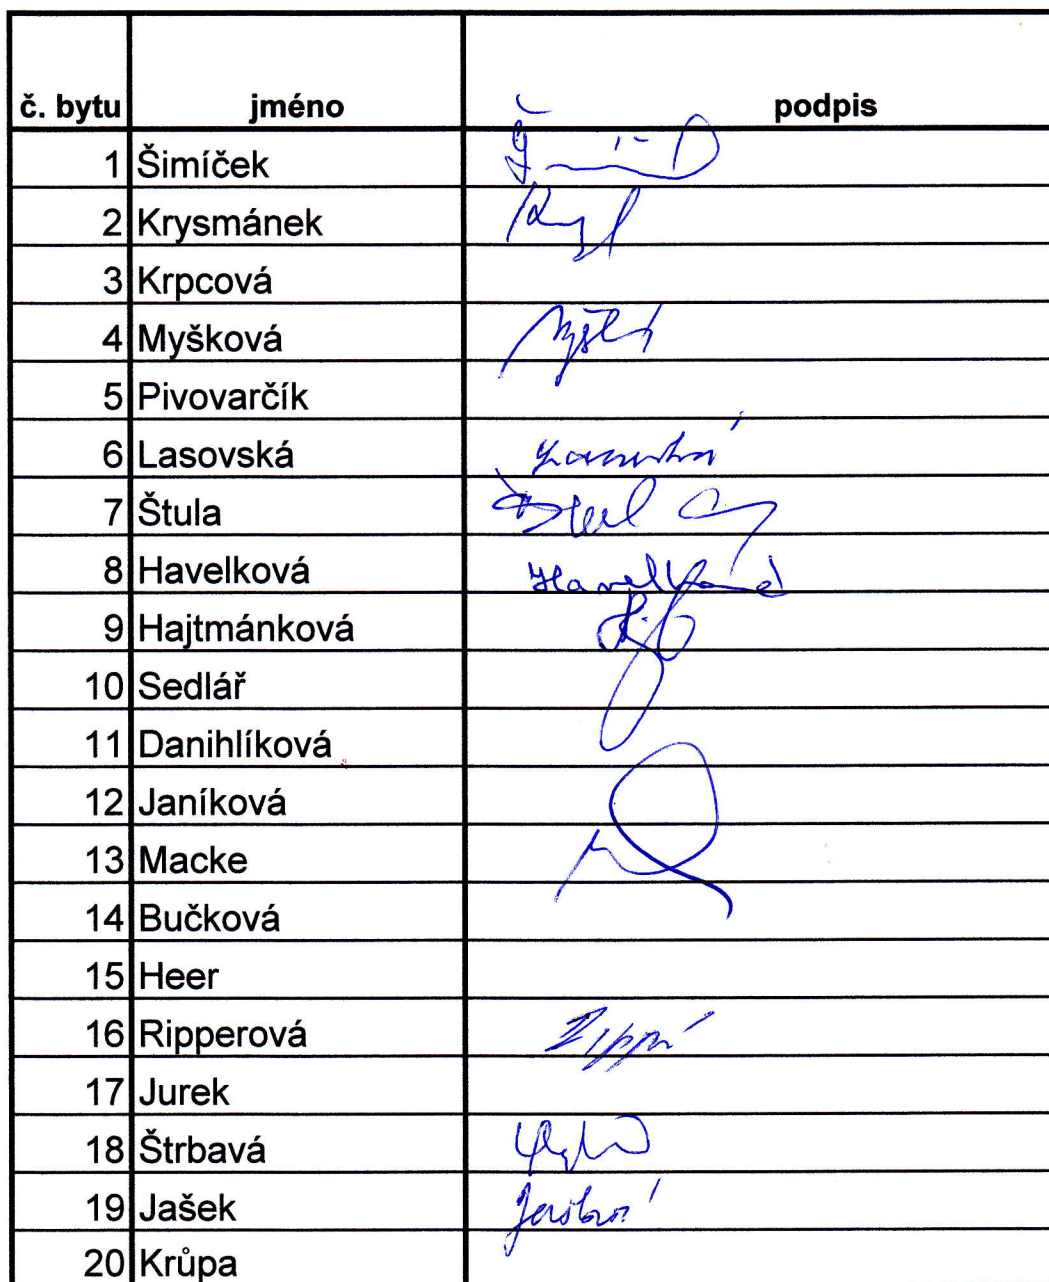 č. bytu jméno podpis
1 Šimíček
2 Krysmánek
3 Krpcová
4 Myšková
5 Pivovarčík
6 Lasovská
7 Štula
8 Havelková Havelková
9 Hajtmánková
10 Sedlář
11 Danihlíková
12 Janíková
13 Macke
14 Bučková
15 Heer
16 Ripperová
17 Jurek
18 Štrbavá
19 Jašek
20 Krůpa